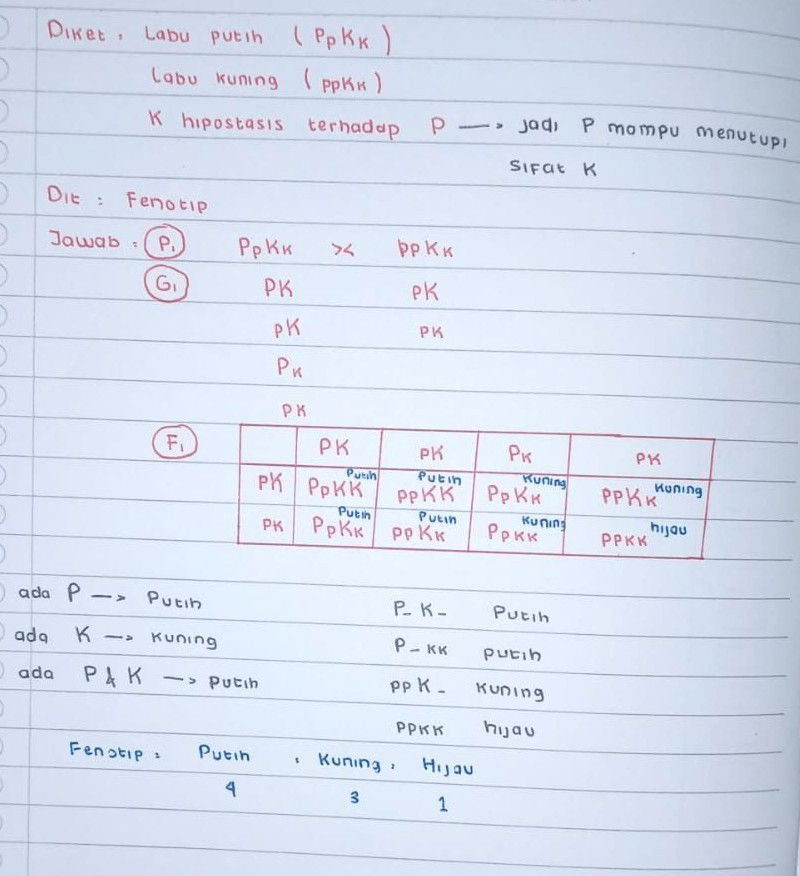 Diket : Labu putih (PpKk)
Labu kuning (ppKk)
K hipostasis terhadap P —> jadi P mampu menutupi
sifat K
Dit : Fenotip
Jawab : P₁ PpKk >< ppKk
G₁ PK pK
pK pk
Pk
pk
F₁ PK pK Pk pk
pK PpKK Putih ppKK Putih PpKk Kuning ppKk Kuning
pk PpKk Putih ppKk Putih Ppkk Kuning ppkk hijau
ada P —> Putih P_K_ Putih
ada K —> kuning P_kk putih
ada P & K —> putih ppK_ kuning
ppkk hijau
Fenotip : Putih : Kuning : Hijau
4 3 1